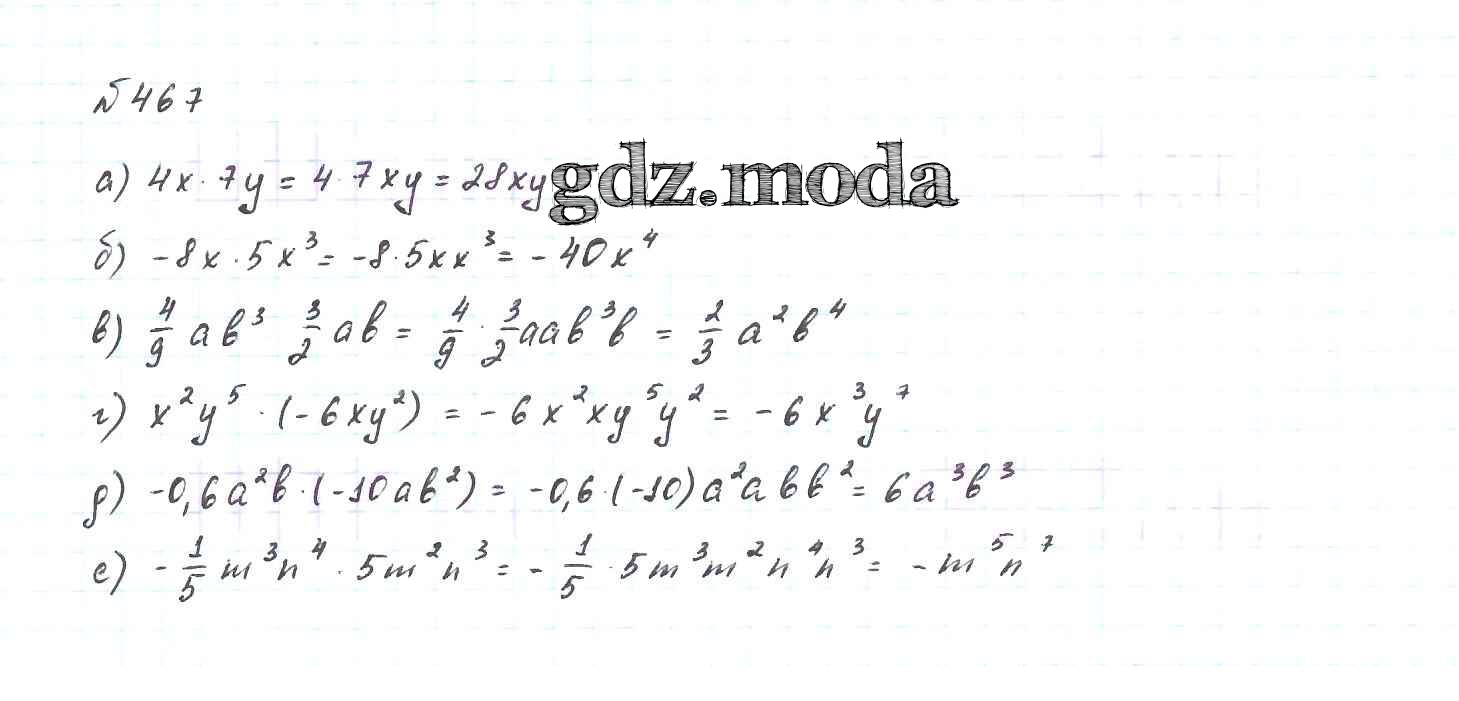 №467
а) 4x · 7y = 4 · 7xy = 28xy gdz.moda
б) -8x · 5x³ = -8 · 5xx³ = -40x⁴
в) 4/9 ab³ 3/2 ab = 4/9 · 3/2 aab³b = 2/3 a²b⁴
г) x²y⁵ · (-6xy²) = -6x²xy⁵y² = -6x³y⁷
д) -0,6a²b · (-10ab²) = -0,6 · (-10)a²abb² = 6a³b³
е) -1/5 m³n⁴ · 5m²n³ = -1/5 · 5m³m²n⁴n³ = -m⁵n⁷